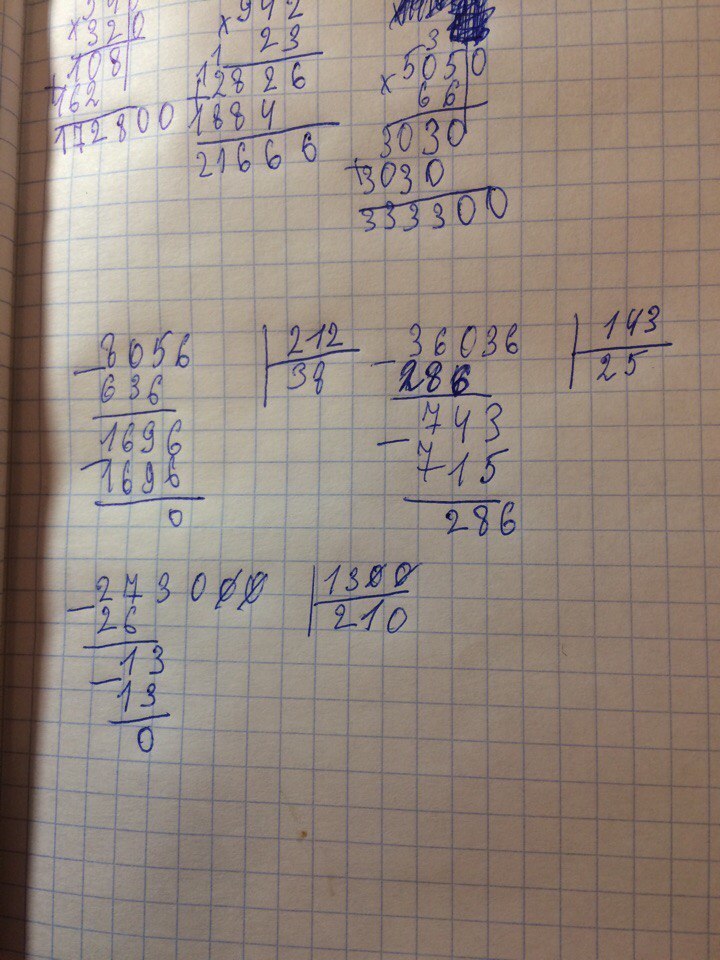 × 320
108
+ 162
172800
942
× 23
11
2826
+ 1884
21666
3
× 5050
66
3030
+ 3030
333300
- 8056 | 212
636 | 38
1696
- 1696
0
- 36036 | 143
286 | 25
743
- 715
286
- 273000 | 1300
26 | 210
- 13
13
0